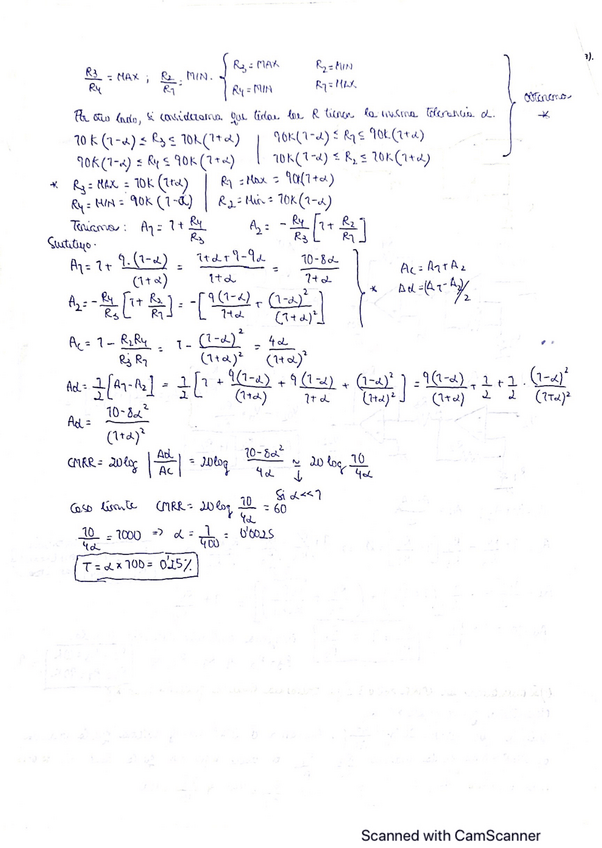 R3/R4 = MAX ; R2/R1 = MIN. { R3 = MAX R2 = MIN
R4 = MIN R1 = MAX
Por otro lado, si consideramos que todas las R tienen la misma tolerancia α.
10K(1-α) ≤ R3 ≤ 10K(1+α) | 90K(1-α) ≤ R1 ≤ 90K(1+α)
90K(1-α) ≤ R4 ≤ 90K(1+α) | 10K(1-α) ≤ R2 ≤ 10K(1+α)
} obtenemos *
* R3 = MAX = 10K(1+α) | R1 = Max = 90K(1+α)
R4 = MIN = 90K(1-α) | R2 = Min = 10K(1-α)
Teníamos: A1 = 1 + R4/R3 A2 = -R4/R3 [1 + R2/R1]
Sustituyo.
A1 = 1 + 9·(1-α)/(1+α) = 1+α+9-9α/1+α = 10-8α/1+α
A2 = -R4/R3 [1 + R2/R1] = -[9(1-α)/1+α + (1-α)²/(1+α)²]
} * Ac = A1 + A2
Ad = (A1-A2)/2
Ac = 1 - R2R4/R3R1 = 1 - (1-α)²/(1+α)² = 4α/(1+α)²
Ad = 1/2 [A1-A2] = 1/2 [1 + 9(1-α)/(1+α) + 9(1-α)/1+α + (1-α)²/(1+α)²] = 9(1-α)/(1+α) + 1/2 + 1/2 · (1-α)²/(1+α)²
Ad = 10-8α²/(1+α)²
CMRR = 20log |Ad/Ac| = 20log 10-8α²/4α ≈ 20log 10/4α
↓
Si α<<1
Caso límite CMRR = 20log 10/4α = 60
10/4α = 1000 => α = 1/400 = 0'0025
T = α x 100 = 0'25%
Scanned with CamScanner